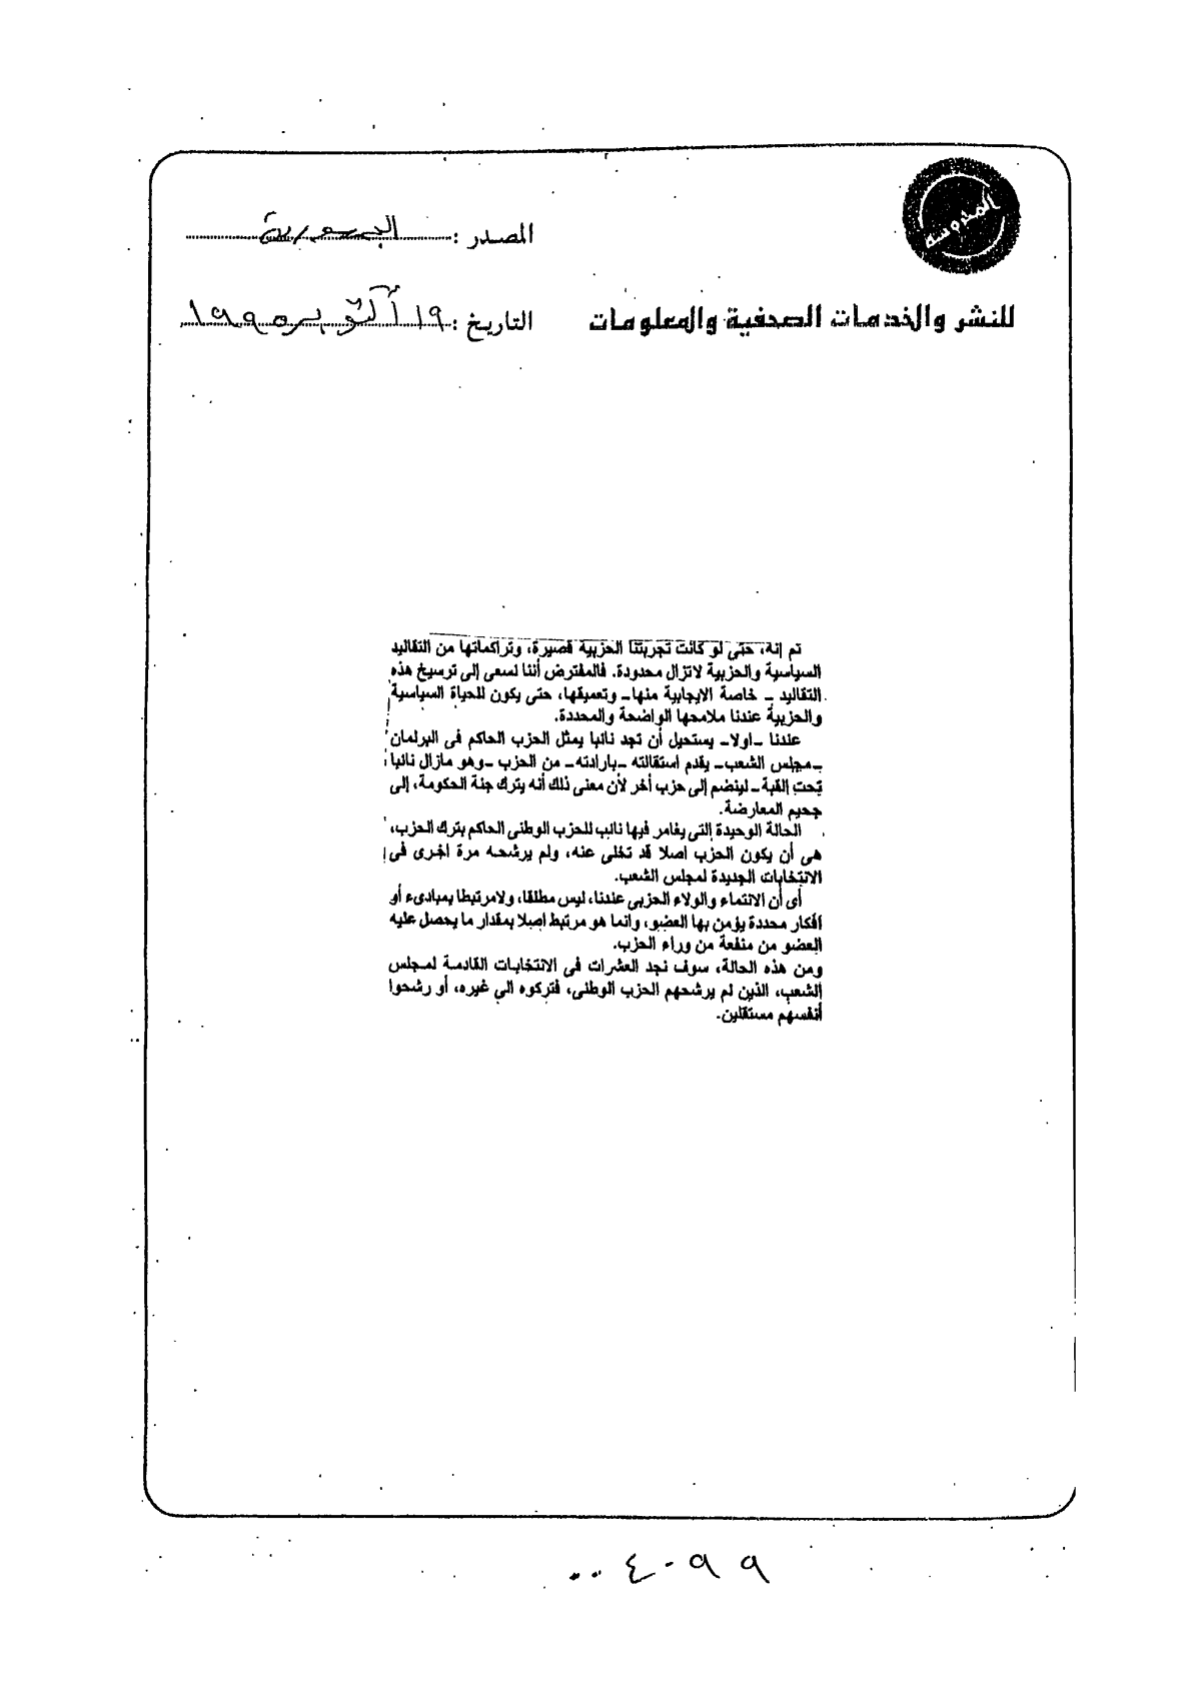 المصدر : الجمهورية
المحروسة
للنشر والخدمات الصحفية والمعلومات
التاريخ : ١٩ أكتوبر ١٩٩٥
ثم إنه، حتى لو كانت تجربتنا الحزبية قصيرة، وتراكماتها من التقاليد
السياسية والحزبية لاتزال محدودة. فالمفترض أننا نسعى إلى ترسيخ هذه
التقاليد ـ خاصة الايجابية منها ـ وتعميقها، حتى يكون للحياة السياسية
والحزبية عندنا ملامحها الواضحة والمحددة.
عندنا ـ اولا ـ يستحيل أن تجد نائبا يمثل الحزب الحاكم فى البرلمان
ـ مجلس الشعب ـ يقدم استقالته ـ بارادته ـ من الحزب ـ وهو مازال نائبا
تحت القبة ـ لينضم إلى حزب أخر لأن معنى ذلك أنه يترك جنة الحكومة، إلى
جحيم المعارضة.
الحالة الوحيدة التى يغامر فيها نائب للحزب الوطنى الحاكم بترك الحزب،
هى أن يكون الحزب اصلا قد تخلى عنه، ولم يرشحه مرة اخرى فى
الانتخابات الجديدة لمجلس الشعب.
أى أن الانتماء والولاء الحزبى عندنا، ليس مطلقا، ولامرتبطا بمبادىء أو
أفكار محددة يؤمن بها العضو، وانما هو مرتبط اصلا بمقدار ما يحصل عليه
العضو من منفعة من وراء الحزب.
ومن هذه الحالة، سوف نجد العشرات فى الانتخابات القادمة لمجلس
الشعب، الذين لم يرشحهم الحزب الوطنى، فتركوه الى غيره، أو رشحوا
أنفسهم مستقلين.
٠٠٤٠٩٩